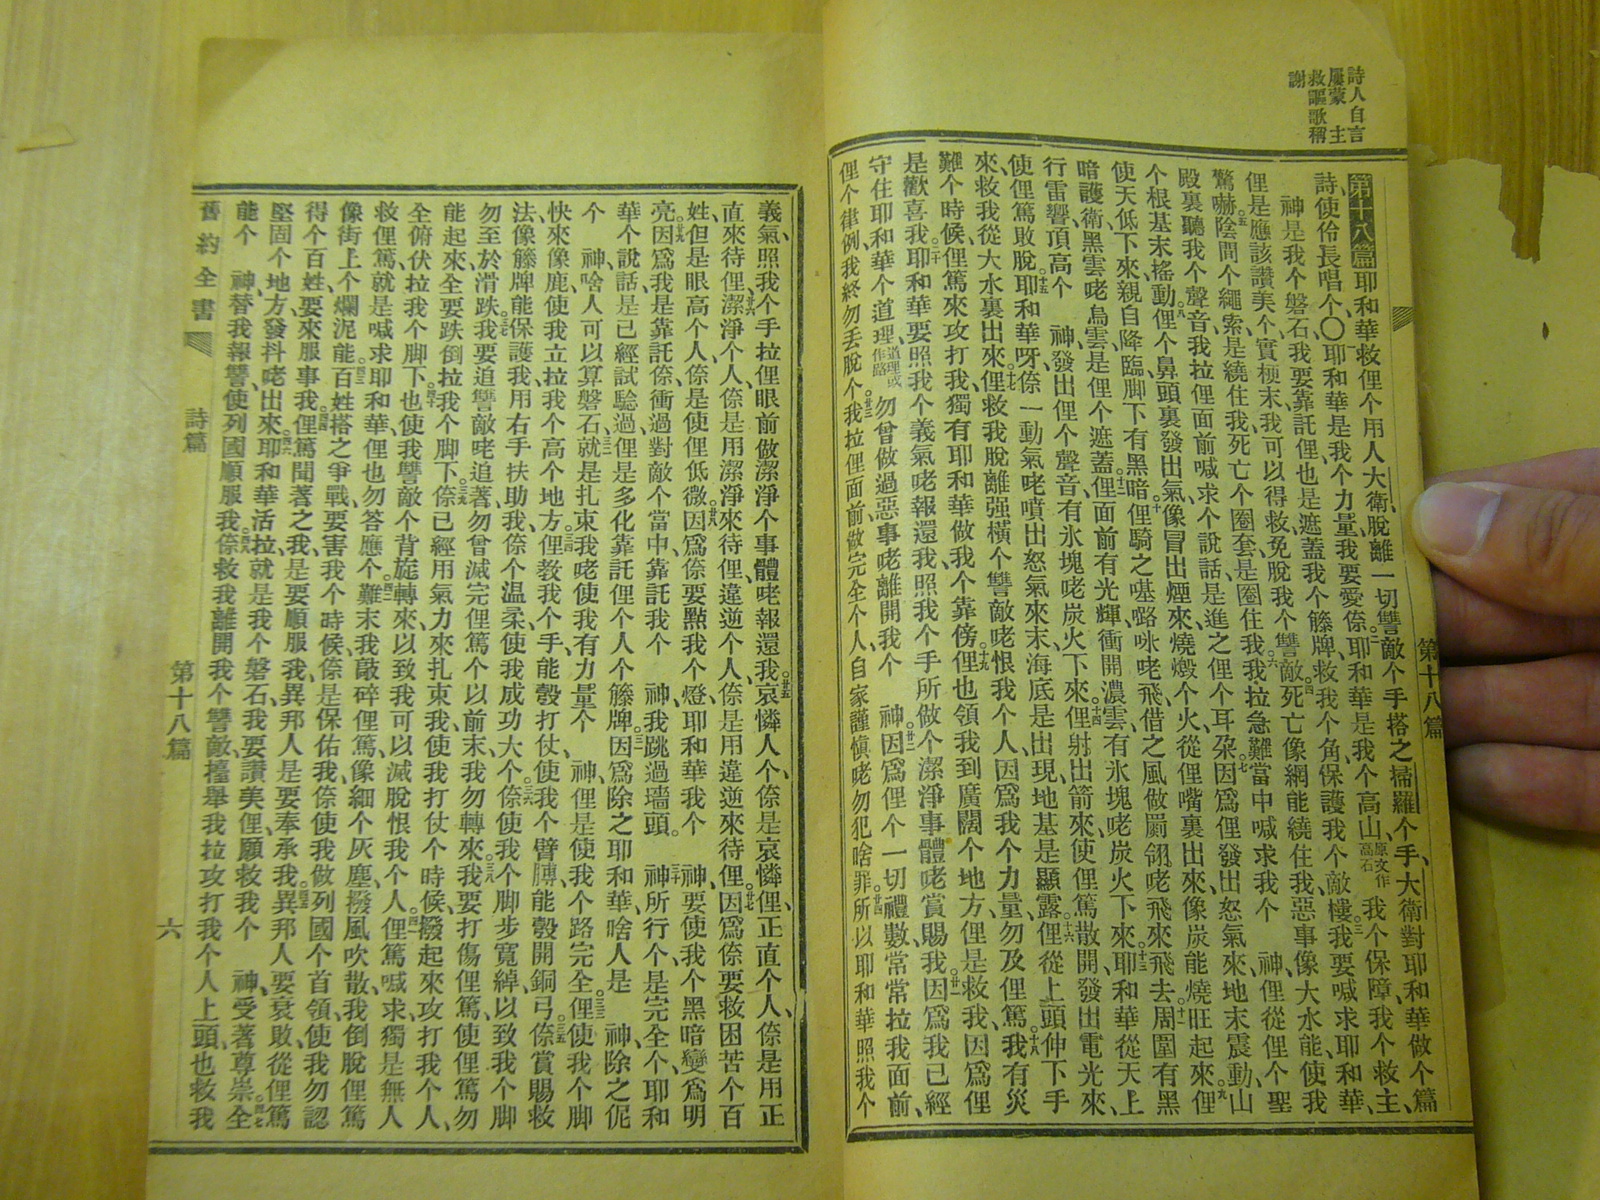 詩人自言
屢蒙　主
救謳歌稱
謝
第十八篇
第十八篇耶和華救俚个用人大衛、脫離一切讐敵个手搭之掃羅个手、大衛對耶和華做个篇
詩、使伶長唱个、〇耶和華是我个力量我要愛倷、二耶和華是我个高山、原文作高石我个保障、我个救主、
神是我个磐石、我要靠託俚也是遮蓋我个籐牌、救我个角、保護我个敵樓、三我要喊求耶和華、
俚是應該讚美个、實梗末、我可以得救、免脫我个讐敵、四死亡像網能繞住我、惡事像大水能、使我
驚嚇、五陰間个繩索、是繞住我、死亡个圈套、是圈住我、六我拉急難當中喊求我个　神、俚從俚个聖
殿裏聽我个聲音、我拉俚面前喊求个說話、是進之俚个耳朶、七因爲俚發出怒氣來、地末震動、山
个根基末搖動、八俚个鼻頭裏發出氣、像冒出煙來、燒燬个火、從俚嘴裏出來、像炭能燒旺起來、九俚
使天低下來、親自降臨、脚下有黑暗、十俚騎之𠼻𡀔𠲖咾飛、借之風做翩翎咾飛來飛去、十一周圍有黑
暗護衛、黑雲咾烏雲、是俚个遮蓋、十二俚面前有光輝、衝開濃雲、有氷塊咾炭火下來、十三耶和華從天上
行雷響、頂高个　神、發出俚个聲音、有氷塊咾炭火、下來、十四俚射出箭來、使俚篤散開、發出電光來、
使俚篤敗脫、十五耶和華呀、倷一動氣咾噴出怒氣來末、海底是出現、地基是顯露、十六俚從上頭伸下手
來、救我從大水裏出來、十七俚救我脫離强橫个讐敵、咾恨我个人、因爲我个力量、勿及俚篤、十八我有災
難个時候、俚篤來攻打我、獨有耶和華做我个靠傍、十九俚也領我到廣闊个地方、俚是救我、因爲俚
是歡喜我、二十耶和華要照我个義氣咾報還我、照我个手所做个潔淨事體咾賞賜我、廿一因爲我已經
守住耶和華个道理、道理或作路勿曾做過惡事咾離開我个　神、廿二因爲俚个一切禮數、常常拉我面前、
俚个律例、我終勿丟脫个、廿三我拉俚面前、做完全个人、自家謹愼咾勿犯啥罪、廿四所以耶和華照我个
義氣、照我个手拉俚眼前做潔淨个事體咾報還我、廿五哀憐人个、倷是哀憐俚、正直个人、倷是用正
直來待俚、廿六潔淨个人、倷是用潔淨來待俚、違逆个人、倷是用違逆來待俚、廿七因爲倷要救困苦个百
姓、但是眼高个人、倷是使俚低微、廿八因爲倷要點我个燈、耶和華我个　神、要使我个黑暗變爲明
亮、廿九因爲我是靠託倷、衝過對敵个當中、靠託我个　神、我跳過墻頭、三十　神所行个是完全个、耶和
華个說話、是已經試騐過、俚是多化靠託俚个人个籐牌、三一因爲除之耶和華、啥人是　神、除之伲
个　神、啥人可以算磐石、三二就是扎束我咾使我有力量个、　神、俚是使我个路完全、三三俚使我个脚
快來像鹿、使我立拉我个高个地方、三四俚教我个手、能彀打仗、使我个臂膊、能彀開銅弓、三五倷賞賜救
法像籐牌、能保護我、用右手扶助我、倷个温柔、使我成功大个、三六倷使我个脚步寬綽、以致我个脚
勿至於滑跌、三七我要追讐敵咾追著、勿曾滅完俚篤个以前末、我勿轉來、三八我要打傷俚篤、使俚篤勿
能起來、全要跌倒拉我个脚下、三九倷已經用氣力來扎束我、使我打仗个時候、撥起來攻打我个人、
全俯伏拉我个脚下、四十也使我讐敵个背旋轉來、以致我可以滅脫恨我个人、四一俚篤喊求、獨是無人
救俚篤、就是喊求耶和華、俚也勿答應个、四二難末我敲碎俚篤、像細个灰塵、撥風吹散、我倒脫俚篤
像街上个爛泥能、四三百姓搭之爭戰、要害我个時候、倷是保佑我、倷使我做列國个首領、使我勿認
得个百姓、要來服事我、四四俚篤聞著之我、是要順服我、異邦人是要奉承我、四五異邦人要衰敗、從俚篤
堅固个地方、發抖咾出來、四六耶和華活拉、就是我个磐石、我要讚美俚、願救我个　神、受著尊崇、四七全
能个　神、替我報讐、使列國順服我、四八倷救我離開我个讐敵、擡舉我拉攻打我个人上頭、也救我
舊約全書
詩篇
第十八篇
六